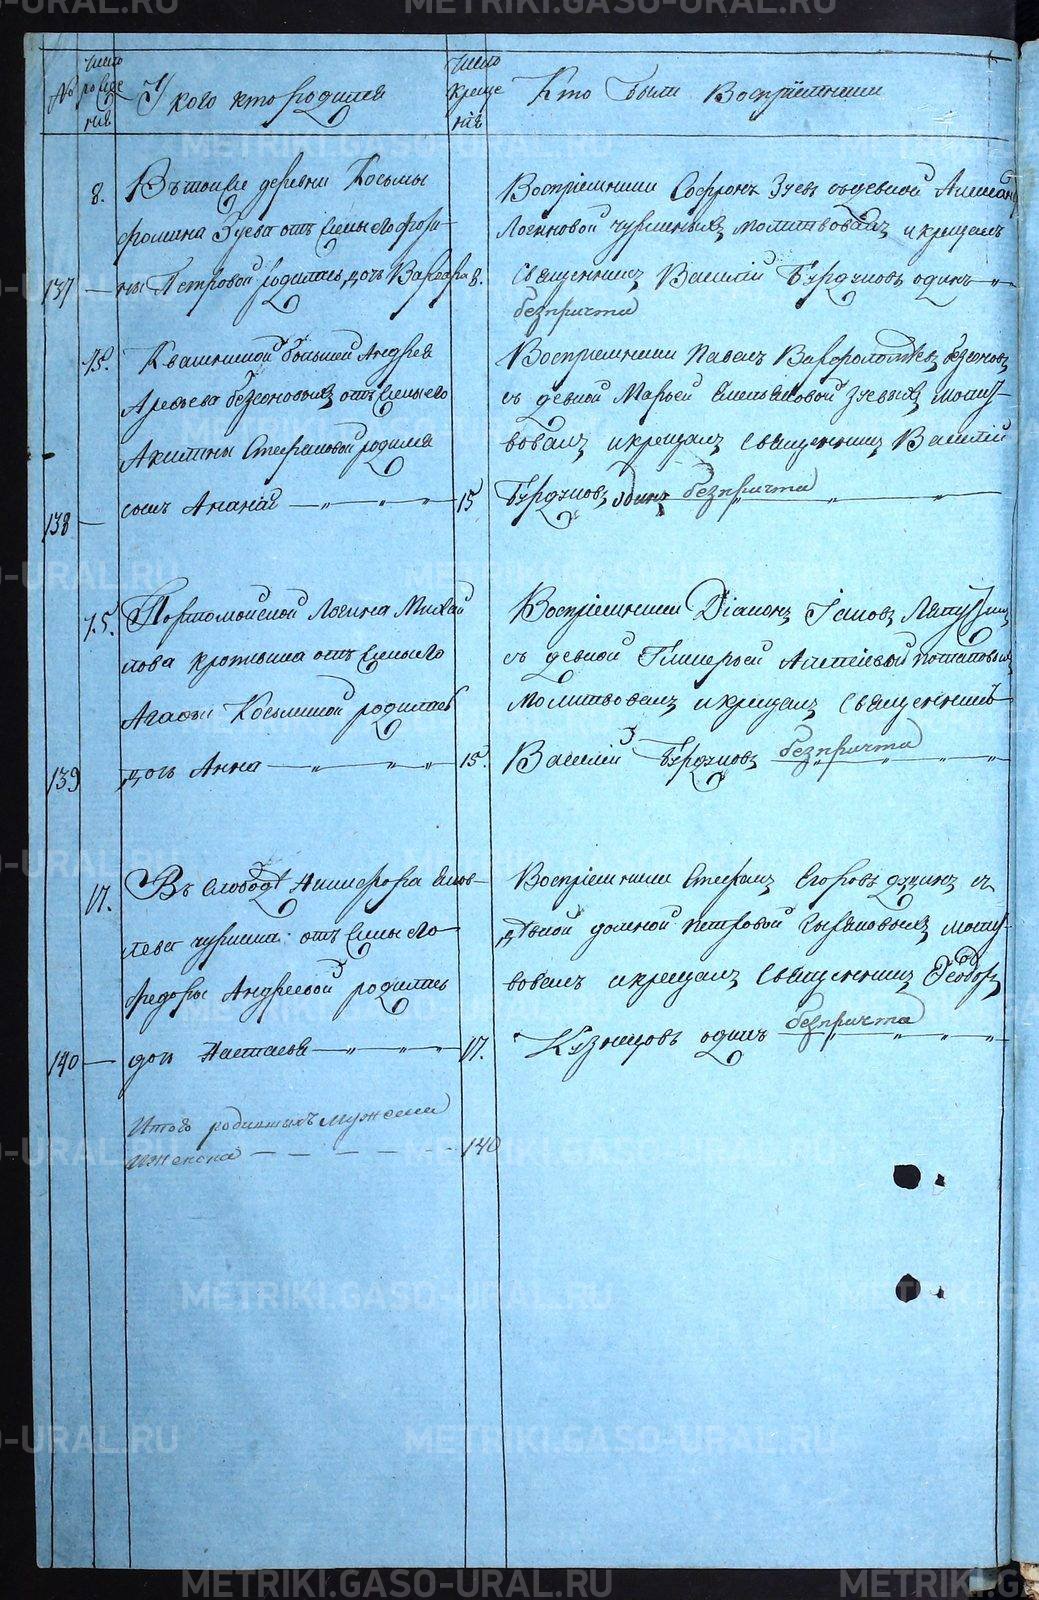 №
число рожде нія
У кого кто родился
число креще нія
Кто были Воспріемники
8.
Въ той же деревни Косьмы
фомина Зуева отъ жены его
137
ны Петровой родилась дочь Варвара
8.
Воспріемники Софронъ Зуевъ съ девкой
Логиновой молитвовалъ и крещалъ
Священникъ Василій Бурдуковъ одинъ
безпричта
15.
Квашниной большей Андрея
Арефьева безсоновыхъ отъ жены его
Акилины Стефановой родился
138
сынъ Ананій
15
Воспріемники Павелъ Варфоломѣевъ безсоновъ
съ девкой Марьей Емельяновой Зуевыхъ молит
вовалъ и крещалъ Священникъ Василій
Бурдуковъ одинъ безпричта
15.
Портомойской Логина Михай
лова отъ жены его
Агафьи Косьминой родилась
139
дочь Анна
15.
Воспріемники Діаконъ Іаковъ
съ девкой Гликерьей Алексѣевой потаповыхъ
Молитвовалъ и крещалъ Священникъ
Василій Бурдуковъ безпричта
17.
Въ Слободѣ Никифора Яков
лева отъ жены его
федоры Андреевой родилась
140
дочь Настасья
17.
Воспріемники Стефанъ Егоровъ съ
дѣвкой домной петровой молит
вовалъ и крещалъ Священникъ Ѳеодоръ
Кузнецовъ одинъ безпричта
Итого родившихъ мужеска
и женска
140
METRIKI.GASO-URAL.RU